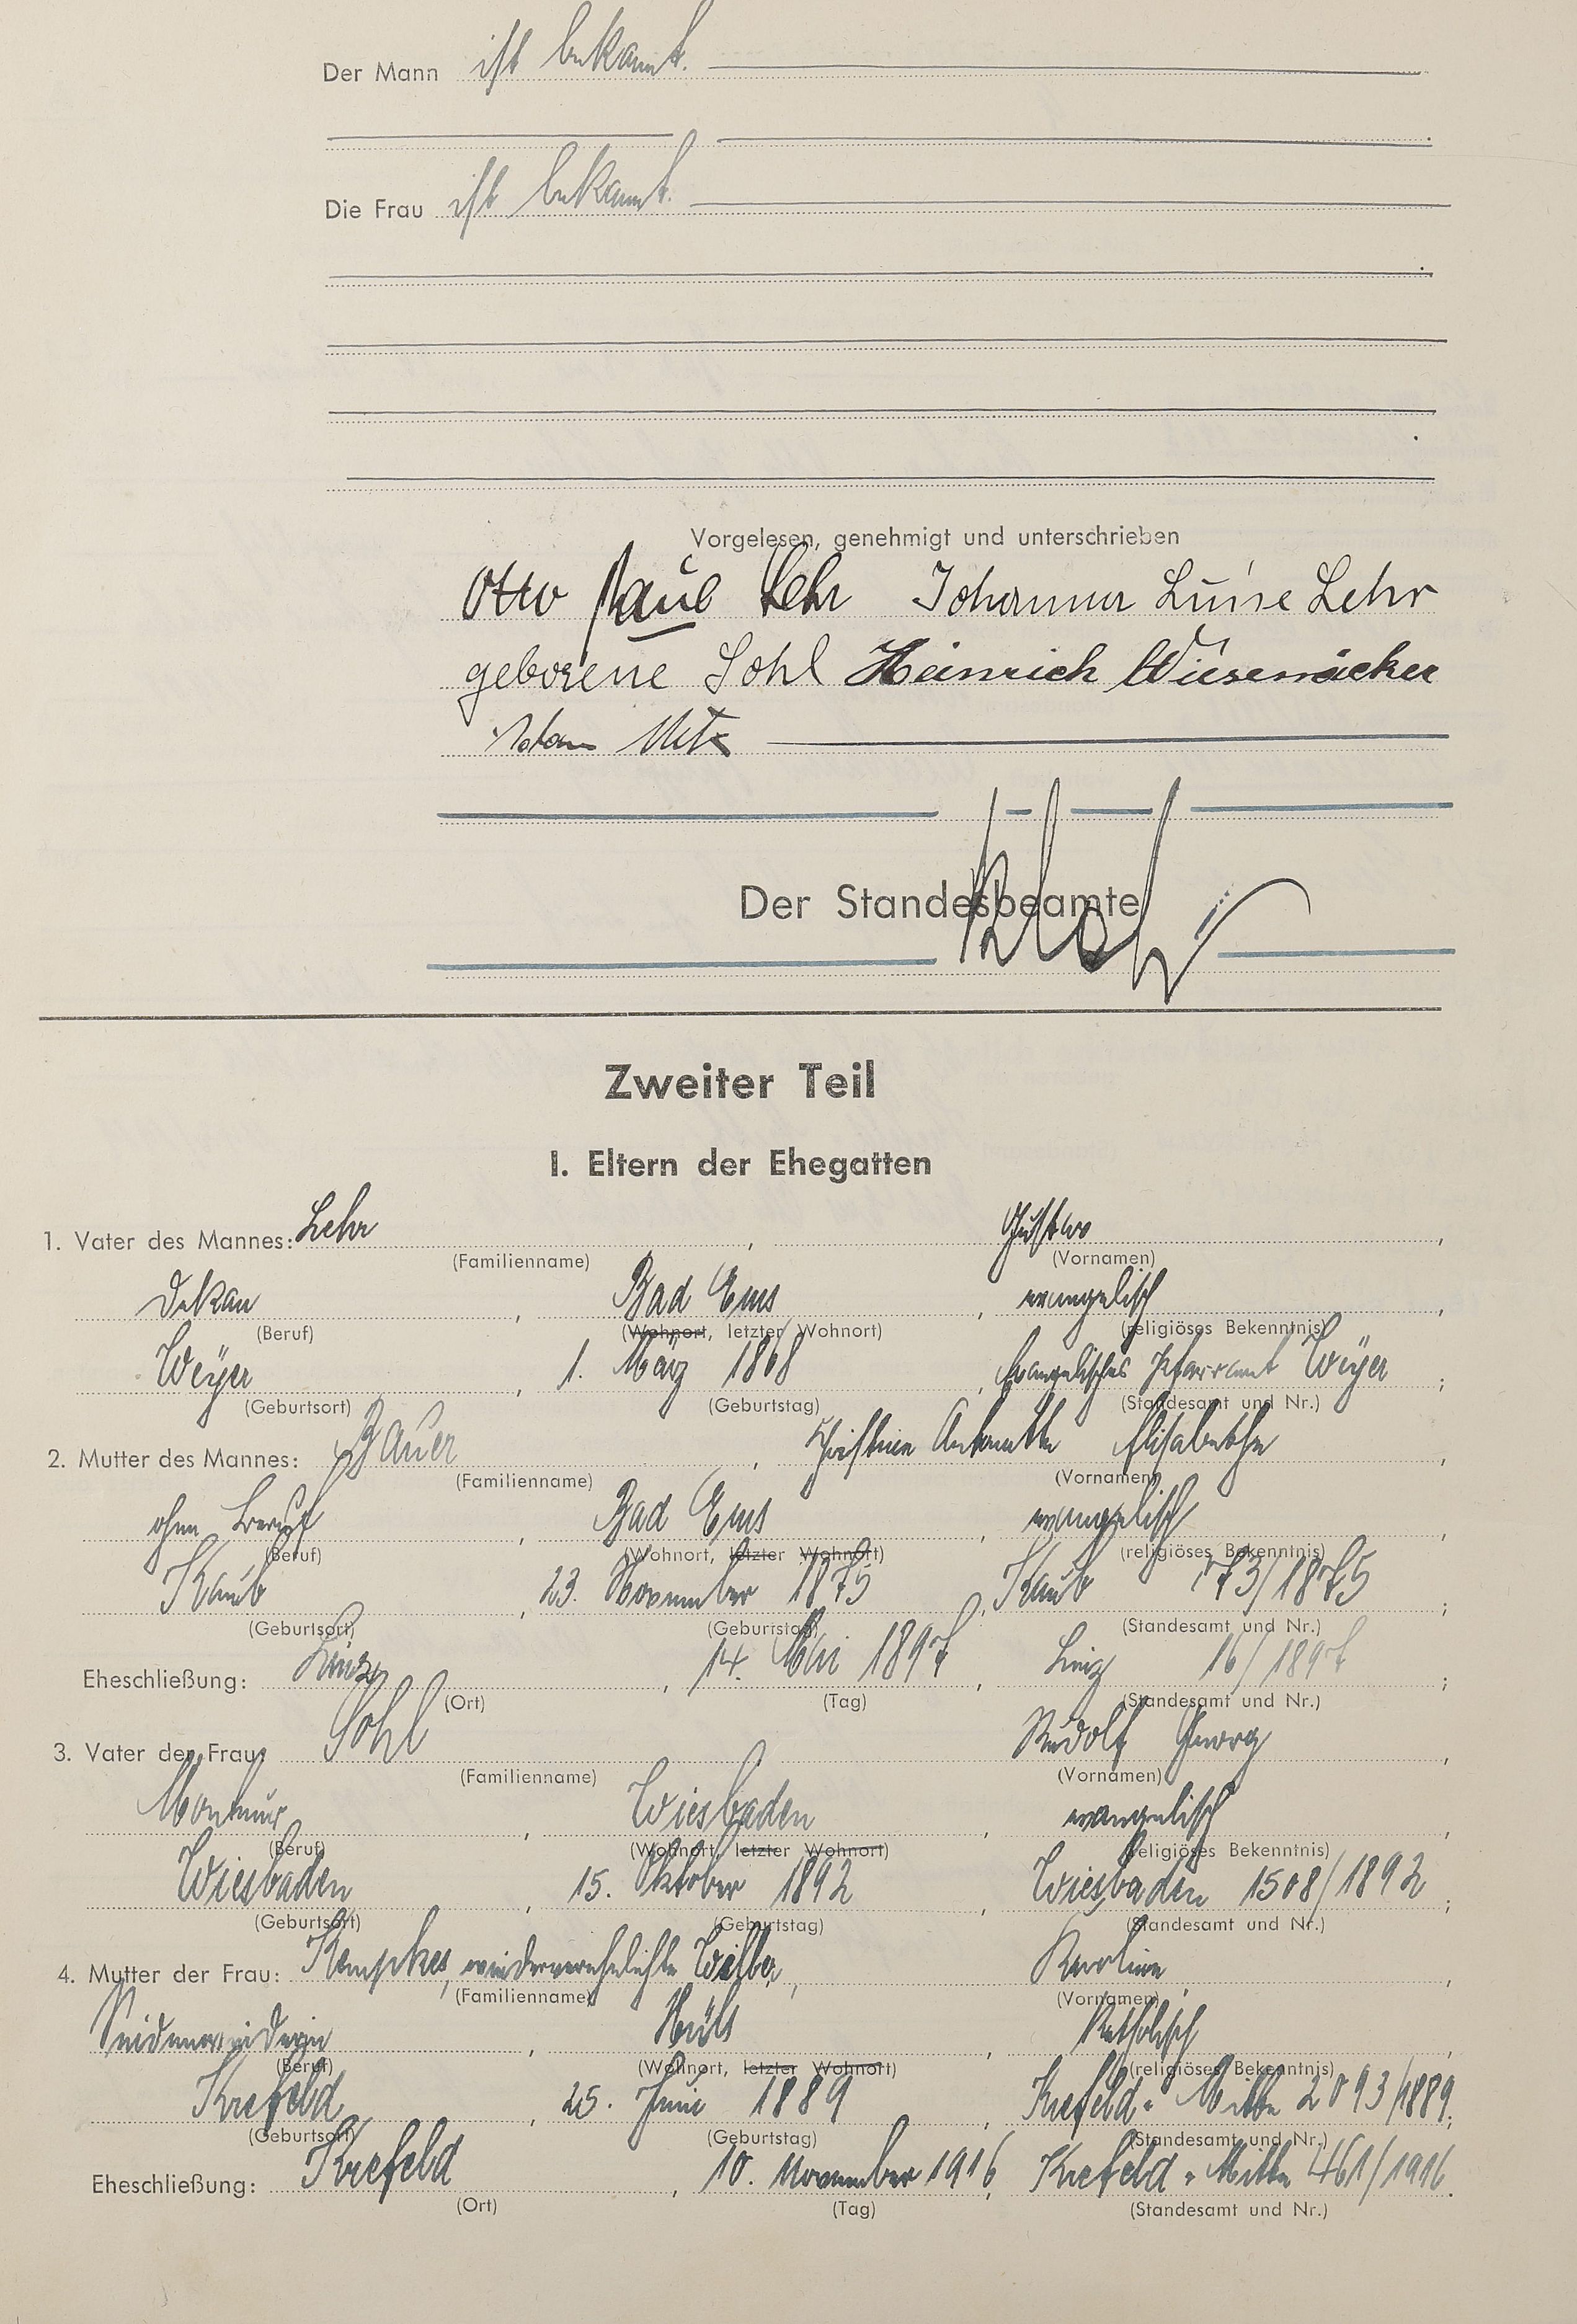 Der Mann ist bekannt.
Die Frau ist bekannt.
Vorgelesen, genehmigt und unterschrieben
Otto Paul Lehr Johanna Luise Lehr
geborene Sohl Heinrich Wiesenäcker
Adam Metz
Der Standesbeamte
Zweiter Teil
I. Eltern der Ehegatten
1. Vater des Mannes: Lehr, Gustav,
(Familienname) (Vornamen)
Dekan, Bad Ems, evangelisch,
(Beruf) (Wohnort, letzter Wohnort) (religiöses Bekenntnis)
Weyer, 1. März 1868, Evangelisches Pfarramt Weyer;
(Geburtsort) (Geburtstag) (Standesamt und Nr.)
2. Mutter des Mannes: Bauer, Christine Antonette Elisabethe,
(Familienname) (Vornamen)
ohne Beruf, Bad Ems, evangelisch,
(Beruf) (Wohnort, letzter Wohnort) (religiöses Bekenntnis)
Kaub, 23. November 1875, Kaub 73/1875;
(Geburtsort) (Geburtstag) (Standesamt und Nr.)
Eheschließung: Linz, 14. Mai 1897, Linz 16/1897;
(Ort) (Tag) (Standesamt und Nr.)
3. Vater der Frau: Sohl Rudolf Georg,
(Familienname) (Vornamen)
Monteur, Wiesbaden, evangelisch,
(Beruf) (Wohnort, letzter Wohnort) (religiöses Bekenntnis)
Wiesbaden, 15. Oktober 1892, Wiesbaden 1508/1892;
(Geburtsort) (Geburtstag) (Standesamt und Nr.)
4. Mutter der Frau: Kempkes, wiederverehelichte, Karoline,
(Familienname) (Vornamen)
Seidenwinderin, Hüls, katholisch,
(Beruf) (Wohnort, letzter Wohnort) (religiöses Bekenntnis)
Krefeld, 25. Juni 1889, Krefeld-Mitte 2093/1889;
(Geburtsort) (Geburtstag) (Standesamt und Nr.)
Eheschließung: Krefeld, 10. November 1916, Krefeld-Mitte 461/1916.
(Ort) (Tag) (Standesamt und Nr.)